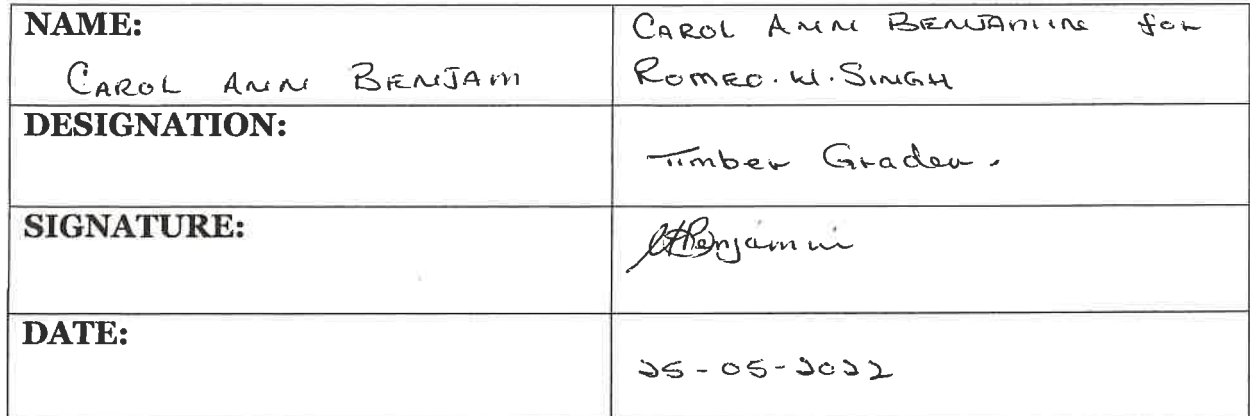 NAME:
CAROL ANN BENJAM
CAROL ANN BENJAMIN for
ROMEO.W.SINGH
DESIGNATION:
Timber Grader.
SIGNATURE:
CABenjamin
DATE:
25-05-2022